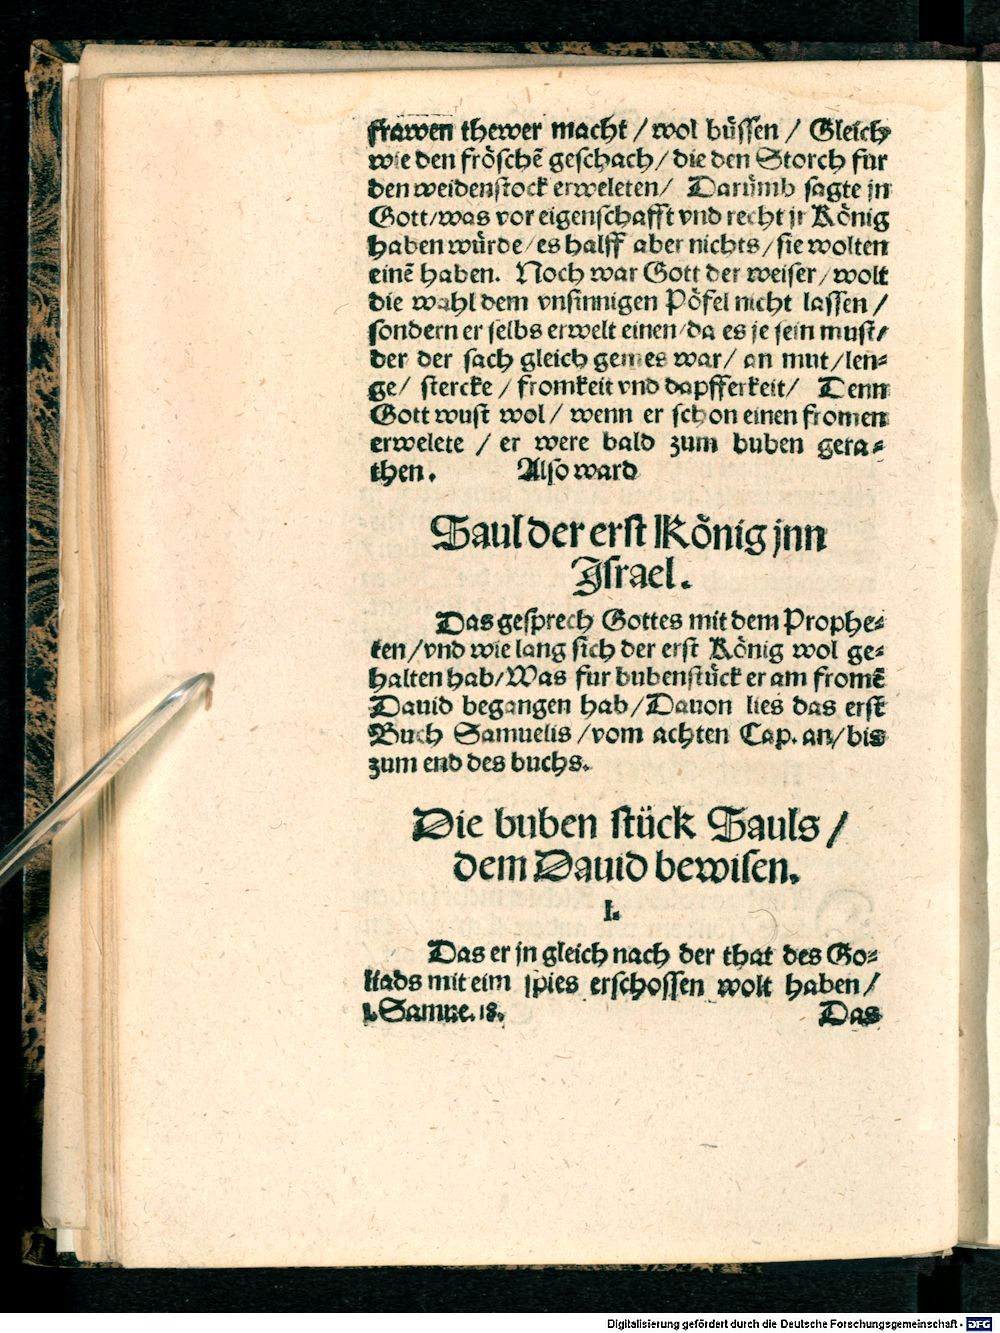 frawen thewer macht / wol büssen / Gleich
wie den fröschē geschach / die den Storch fur
den weidenstock erweleten / Darümb sagte jn
Gott / was vor eigenschafft vnd recht jr König
haben würde / es halff aber nichts / sie wolten
einē haben. Noch war Gott der weiser / wolt
die wahl dem vnsinnigen Pöfel nicht lassen /
sondern er selbs erwelt einen / da es je sein must /
der der sach gleich gemes war / an mut / len-
ge / stercke / fromkeit vnd dapfferkeit / Denn
Gott wust wol / wenn er schon einen fromen
erwelete / er were bald zum buben gera-
then. Also ward
Saul der erst König jnn
Israel.
Das gesprech Gottes mit dem Prophe-
ten / vnd wie lang sich der erst König wol ge-
halten hab / Was fur bubenstück er am fromē
Dauid begangen hab / Dauon lies das erst
Buch Samuelis / vom achten Cap. an / bis
zum end des buchs.
Die buben stück Sauls /
dem Dauid bewisen.
I.
Das er jn gleich nach der that des Go-
liads mit eim spies erschossen wolt haben /
1. Samue. 18. Das
Digitalisierung gefördert durch die Deutsche Forschungsgemeinschaft - DFG